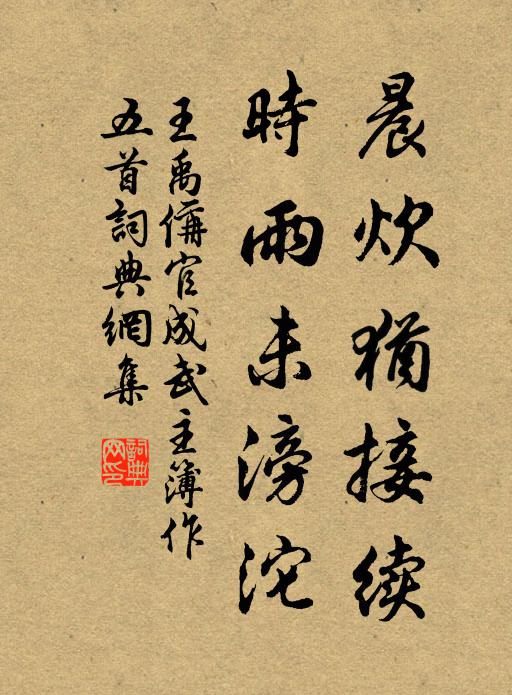 晨炊猶接续
時雨未滂沱
王禹偁官成武主簿作
五首詞典網集
詞典網印